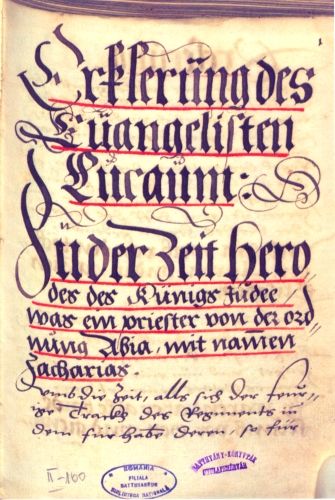 Erklerung des
Euangelisten
Lucaum:
In der Zeit Hero
des des Künigs Judee
was ein priester von der ord
nung Abia, mit namen
Zacharias.
vmb die Zeit, alls sich der
des Regiments in
dem für habe deren, so für
II-160
ROMANIA
FILIALA
BATTHYANEUM
BIBLIOTECA NATIONALA
BATTHYÁNY-KÖNYVTÁR
GYULAFEHÉRVÁR
1